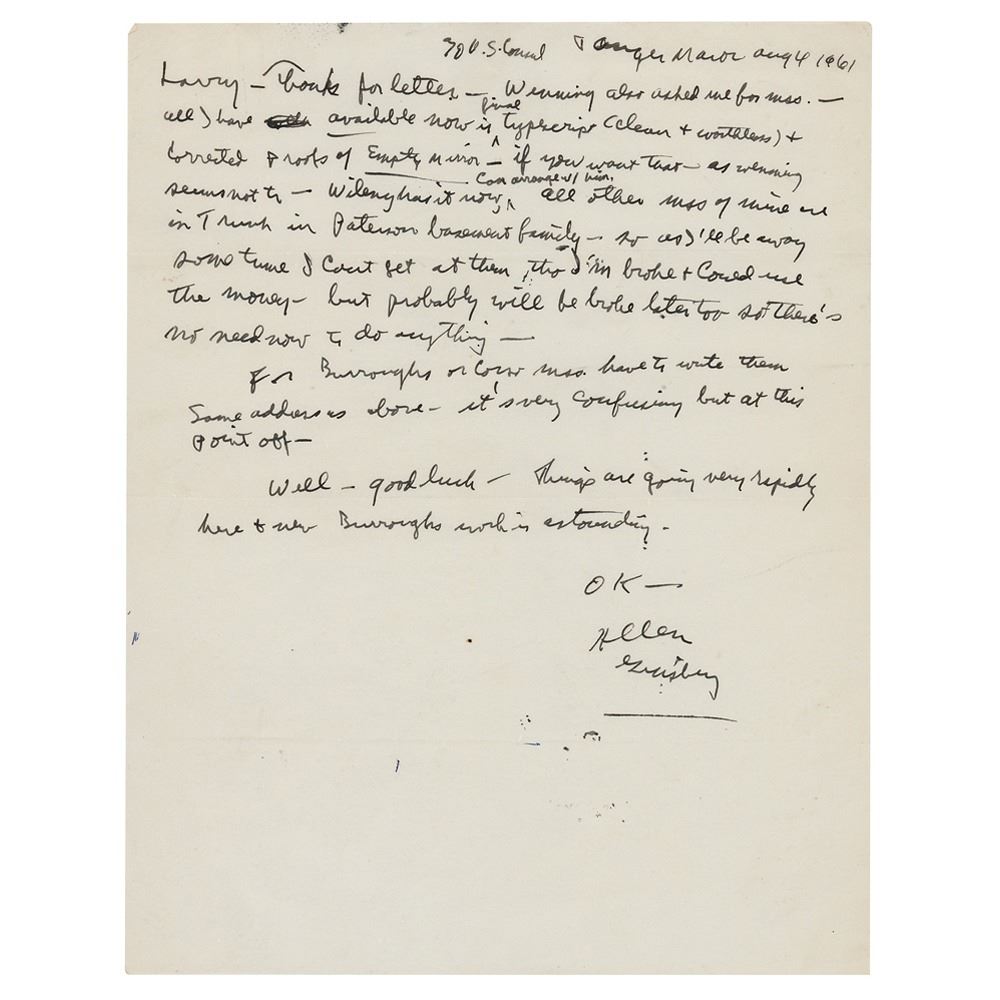 c/o U.S. Consul Tanger Maroc Aug 4 1961
Larry — Thanks for letter — Wenning also asked me for mss. —
all I have available now is final typescript (clean + worthless) +
corrected proofs of Empty Mirror — if you want that — as wenning
seems not to — has it now, Can arrange w/ him. all other mss of mine are
in Trunk in Paterson basement family — so as I'll be away
some time I can't get at them, tho I'm broke + could use
the money — but probably will be broke later too so there's
no need now to do anything —
For Burroughs or Corso mss. have to write them
same address as above — it's very confusing but at this
point off —
Well — good luck — Things are going very rapidly
here & new Burroughs work is astounding.
OK —
Allen
Ginsberg